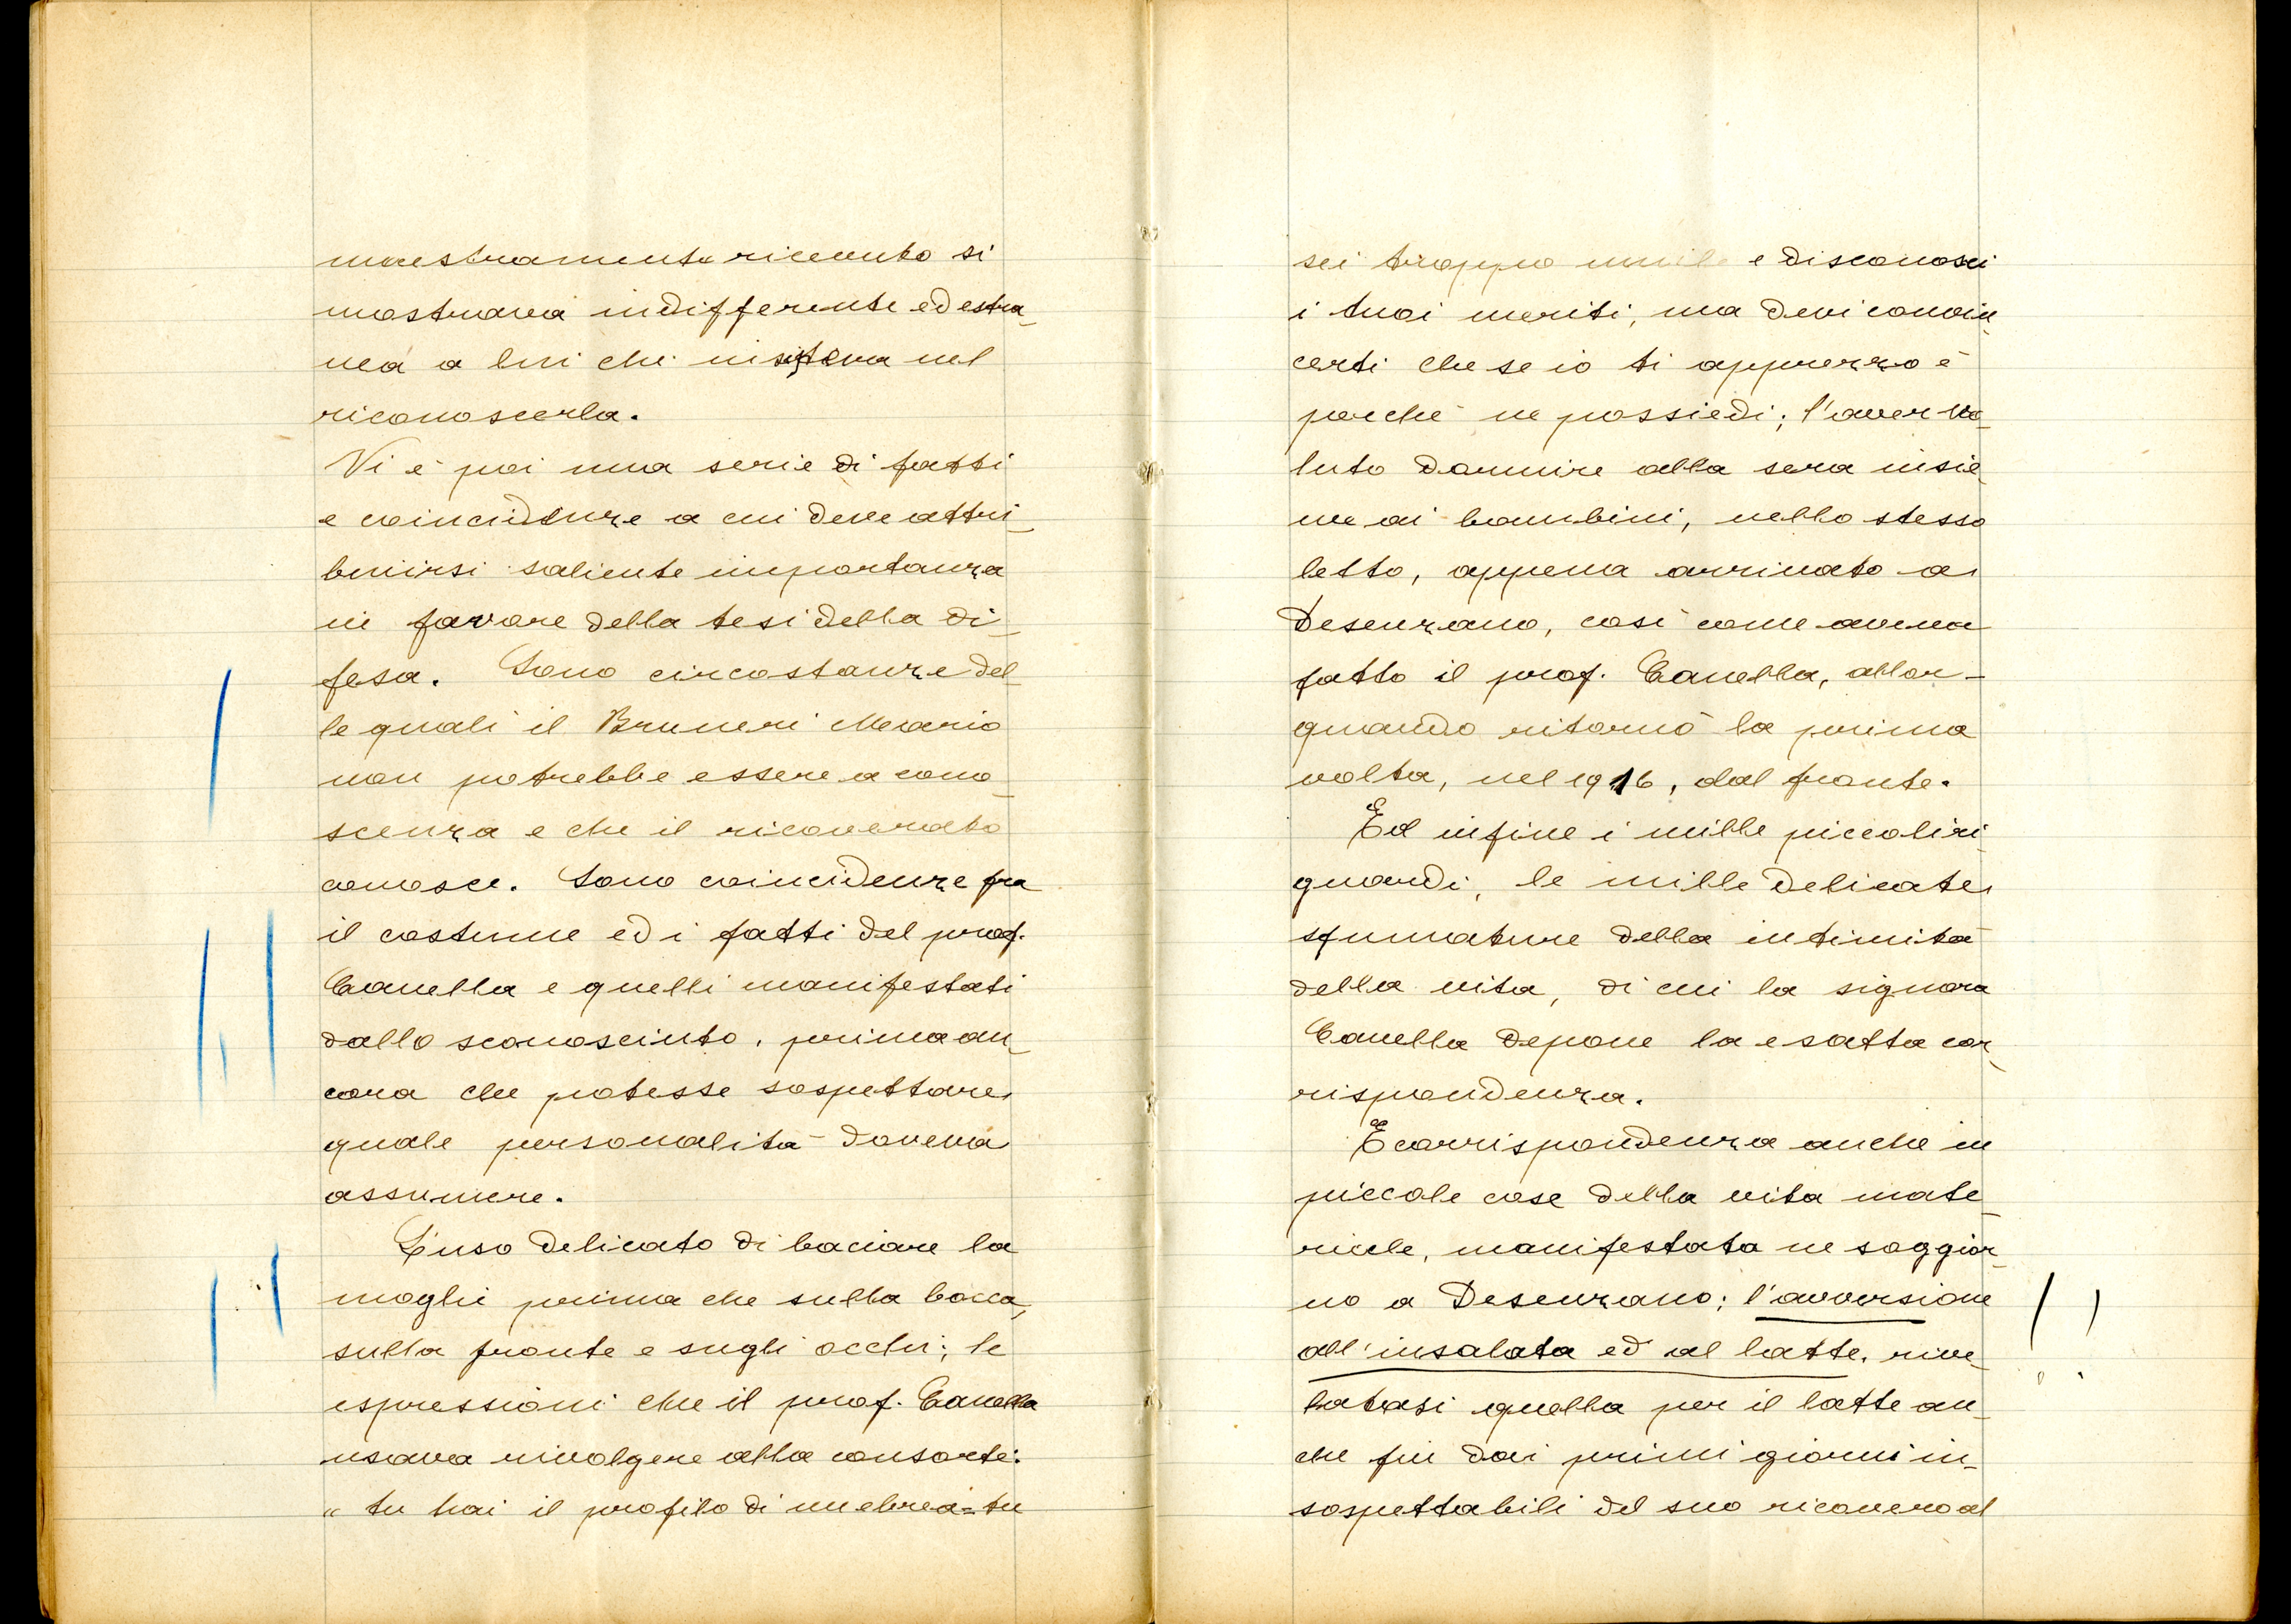 maestramente ricevuto si
mostrava indifferente ed estra-
nea a lui che insisteva nel
riconoscerla.
Vi è poi una serie di fatti
e coincidenze a cui deve attri-
buirsi saliente importanza
in favore della tesi della di-
fesa. Sono circostanze del-
le quali il Bruneri Mario
non potrebbe essere a cono-
scenza e che il ricoverato
conosce. Sono coincidenze fra
il costume ed i fatti del prof.
Canella e quelli manifestati
dallo sconosciuto, prima an-
cora che potesse sospettare
quale personalità doveva
assumere.
L'uso delicato di baciare la
moglie prima che sulla bocca,
sulla fronte e sugli occhi; le
espressioni che il prof. Canella
usava rivolgere alla consorte:
" tu hai il profilo di un ebrea = tu
sei troppo umile e disconosci
i tuoi meriti, ma devi convin-
certi che se io ti apprezzo è
perchè ne possiedi; l'aver vo-
luto dormire alla sera insie-
me ai bambini, nello stesso
letto, appena arrivato a
Desenzano, così come aveva
fatto il prof. Canella, allor-
quando ritornò la prima
volta, nel 1916, dal fronte.
Ed infine i mille piccoli ri-
guardi, le mille delicate
sfumature della intimità
della vita, di cui la signora
Canella depone la esatta cor-
rispondenza.
E corrispondenza anche in
piccole cose della vita mate-
riale, manifestata ne soggior-
no a Desenzano; l'avversione
all'insalata ed al latte, rive-
latasi quella per il latte an-
che fin dai primi giorni in-
sospettabili del suo ricovero al